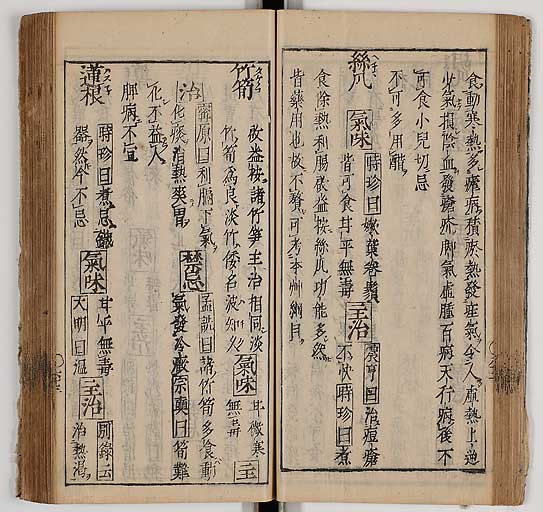 食動寒熱多瘧病積瘀熱發疰氣令人虛熱上逆
少氣損陰血發瘡疥脚氣虛腫百病天行病後不
可食小兒切忌
不可多用醋
絲瓜
氣味
時珍曰嫩葉卷鬚
皆可食甘平無毒
主治
震亨曰治痘瘡
不快時珍曰煮
食除熱利腸啟益按絲瓜功能多然
皆藥用也故不贅可考本州綱目
竹筍
啟益按諸竹笋主治相同淡
竹筍爲良淡竹倭名波知久
氣味
甘微寒
無毒
主
治
寗原曰利膈下氣
化痰消熱爽胃
禁忌
孟詵曰諸竹筍多食動
氣發冷癥宗奭曰筍難
化不益人
脾病不宜
蓮根
時珍曰煮忌鐵
器然今不忌
氣味
甘平無毒
大明曰温
主治
別錄云
治熱渴